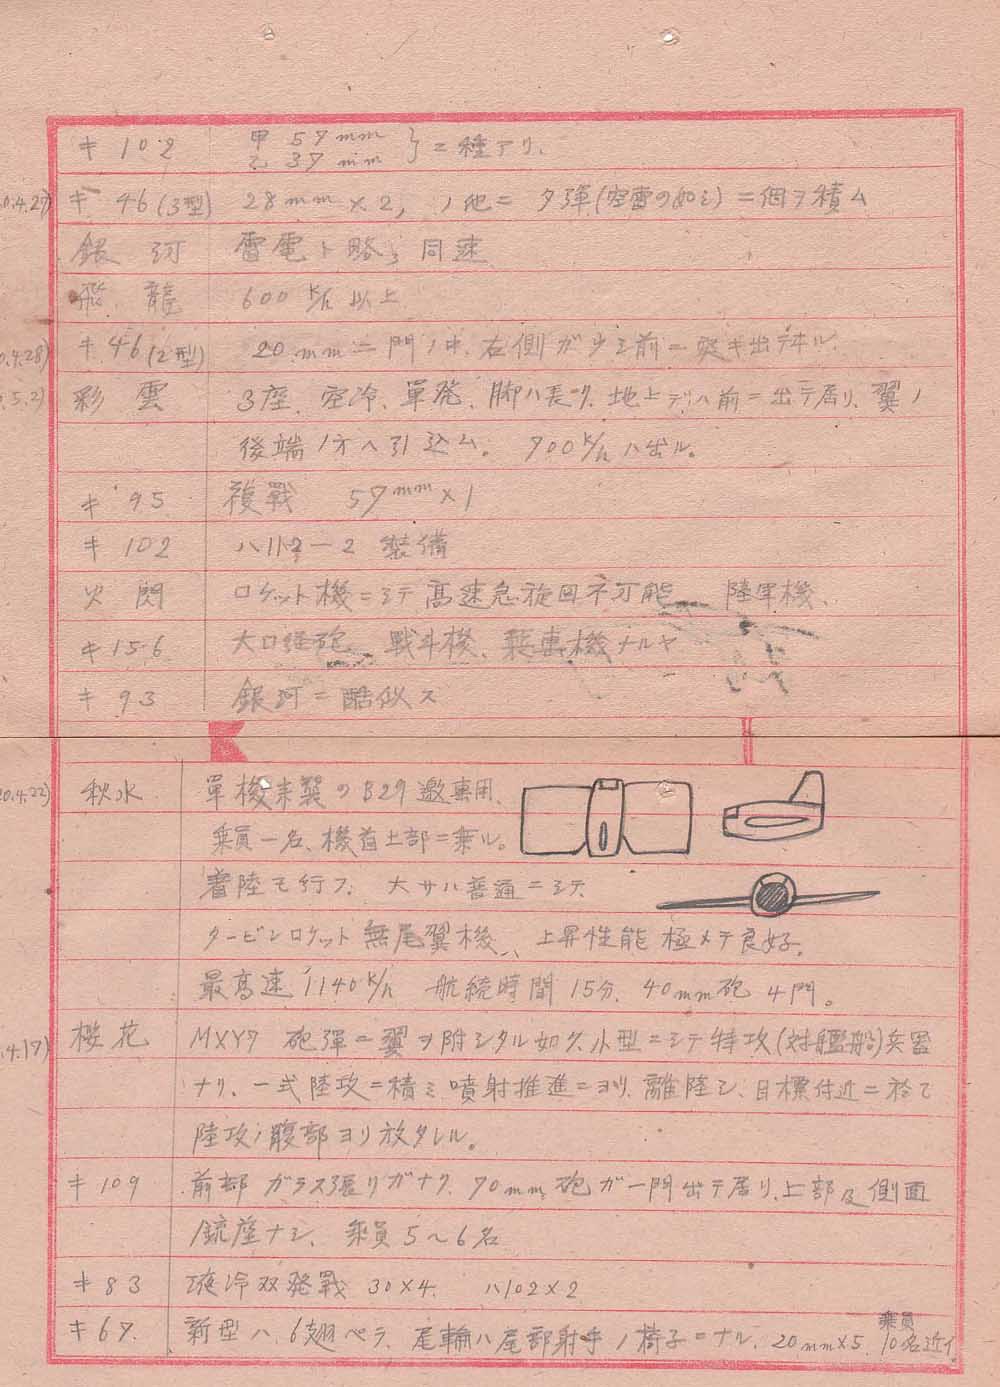 キ 102 甲 57mm
乙 37mm } ニ種アリ.
0.4.27) キ 46(3型) 28mm×2, ノ他ニタ弾(空雷の如シ)ニ個ヲ積ム
銀河 雷電ト略〻同速
飛龍 600K/h以上
0.4.28) キ 46(2型) 20mm二門ノ中、右側ガ少シ前ニ突キ出テヰル.
.5.2) 彩雲 3座、空冷、單発、脚ハ長ク、地上デハ前ニ出テ居リ、翼ノ
後端ノ方ヘ引込ム。 700K/hハ出ル。
キ 95 複戰 57mm×1
キ 102 ハ112-2 裝備
火閃 ロケット機ニシテ高速急旋回不可能 陸軍機、
キ 156 大口径砲、戰斗機、襲撃機ナルヤ
キ 93 銀河ニ酷似ス
20.4.22) 秋水 單機来襲のB29邀撃用、
乗員一名、機首上部ニ乗ル。
着陸モ行フ. 大サハ普通ニシテ
タービンロケット無尾翼機、上昇性能極メテ良好。
最高速1140K/h 航続時間15分. 40mm砲4門。
.4.17) 櫻花 MXY7 砲彈ニ翼ヲ附シタル如ク、小型ニシテ特攻(対艦船)兵器
ナリ、一式陸攻ニ積ミ噴射推進ニヨリ、離陸シ、目標付近ニ於テ
陸攻ノ腹部ヨリ放タレル。
キ 109 前部ガラス張リガナク、70mm砲ガ一門出テ居リ、上部及側面
銃座ナシ、乗員5~6名
キ 83 液冷双発戰 30×4. ハ102×2
キ 67. 新型ハ、6翅ペラ、尾輪ハ尾部射手ノ椅子ニナル. 20mm×5. 乗員10名近イ